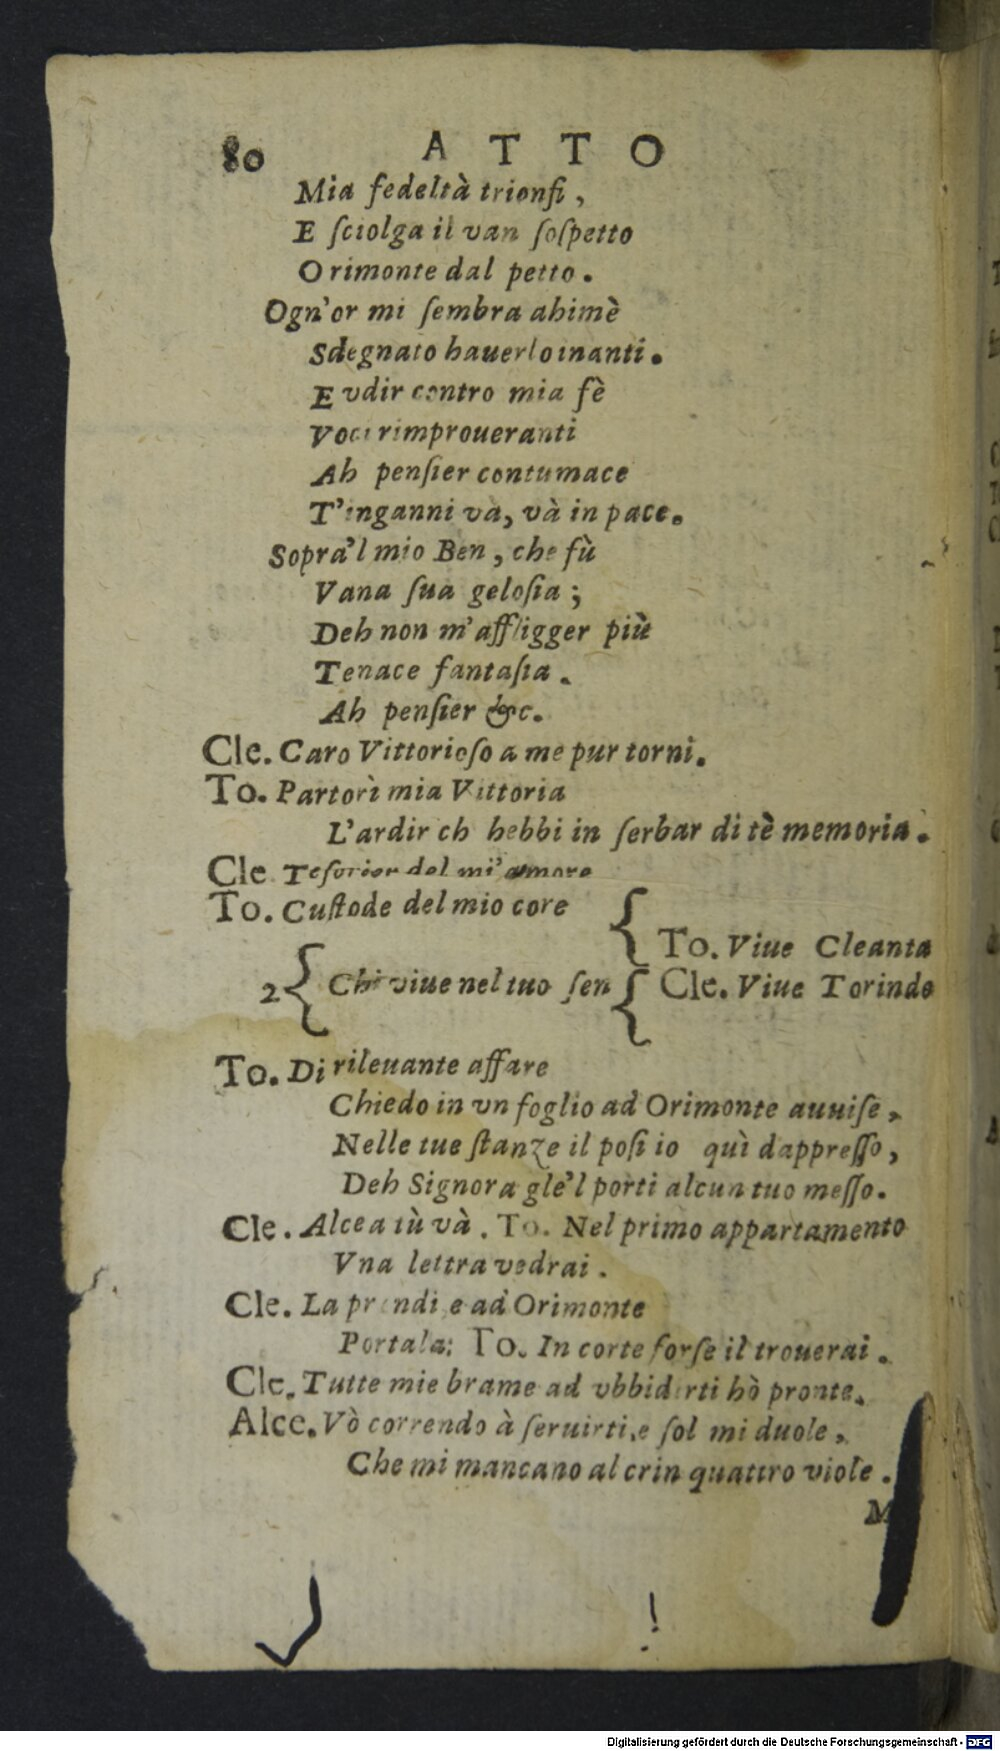 80 ATTO
Mia fedeltà trionfi,
E ſciolga il van ſoſpetto
Orimonte dal petto.
Ogn'or mi ſembra ahimè
Sdegnato hauerlo inanti.
E vdir contro mia fè
Voci rimproueranti
Ah penſier contumace
T'inganni và, và in pace.
Sopra'l mio Ben, che fù
Vana ſua geloſia;
Deh non m'affligger più
Tenace fantaſia.
Ah penſier &c.
Cle. Caro Vittorioſo a me pur torni.
To. Partorì mia Vittoria
L'ardir ch hebbi in ſerbar di tè memoria.
Cle Teſorier del mi' amore
To. Cuſtode del mio core
{ To. Viue Cleanta
2{ Chi viue nel tuo ſen { Cle. Viue Torindo
To. Di rileuante affare
Chiedo in vn foglio ad Orimonte auuiſe,
Nelle tue ſtanze il poſi io quì dappreſſo,
Deh Signora gle'l porti alcun tuo meſſo.
Cle. Alcea tù và. To. Nel primo appartamento
Vna lettra vedrai.
Cle. La prendi e ad Orimonte
Portala: To. In corte forſe il trouerai.
Cle. Tutte mie brame ad vbbidirti hò pronte.
Alce. Vò correndo à ſeruirti, e ſol mi duole,
Che mi mancano al crin quattro viole.
M
Digitalisierung gefördert durch die Deutsche Forschungsgemeinschaft - DFG